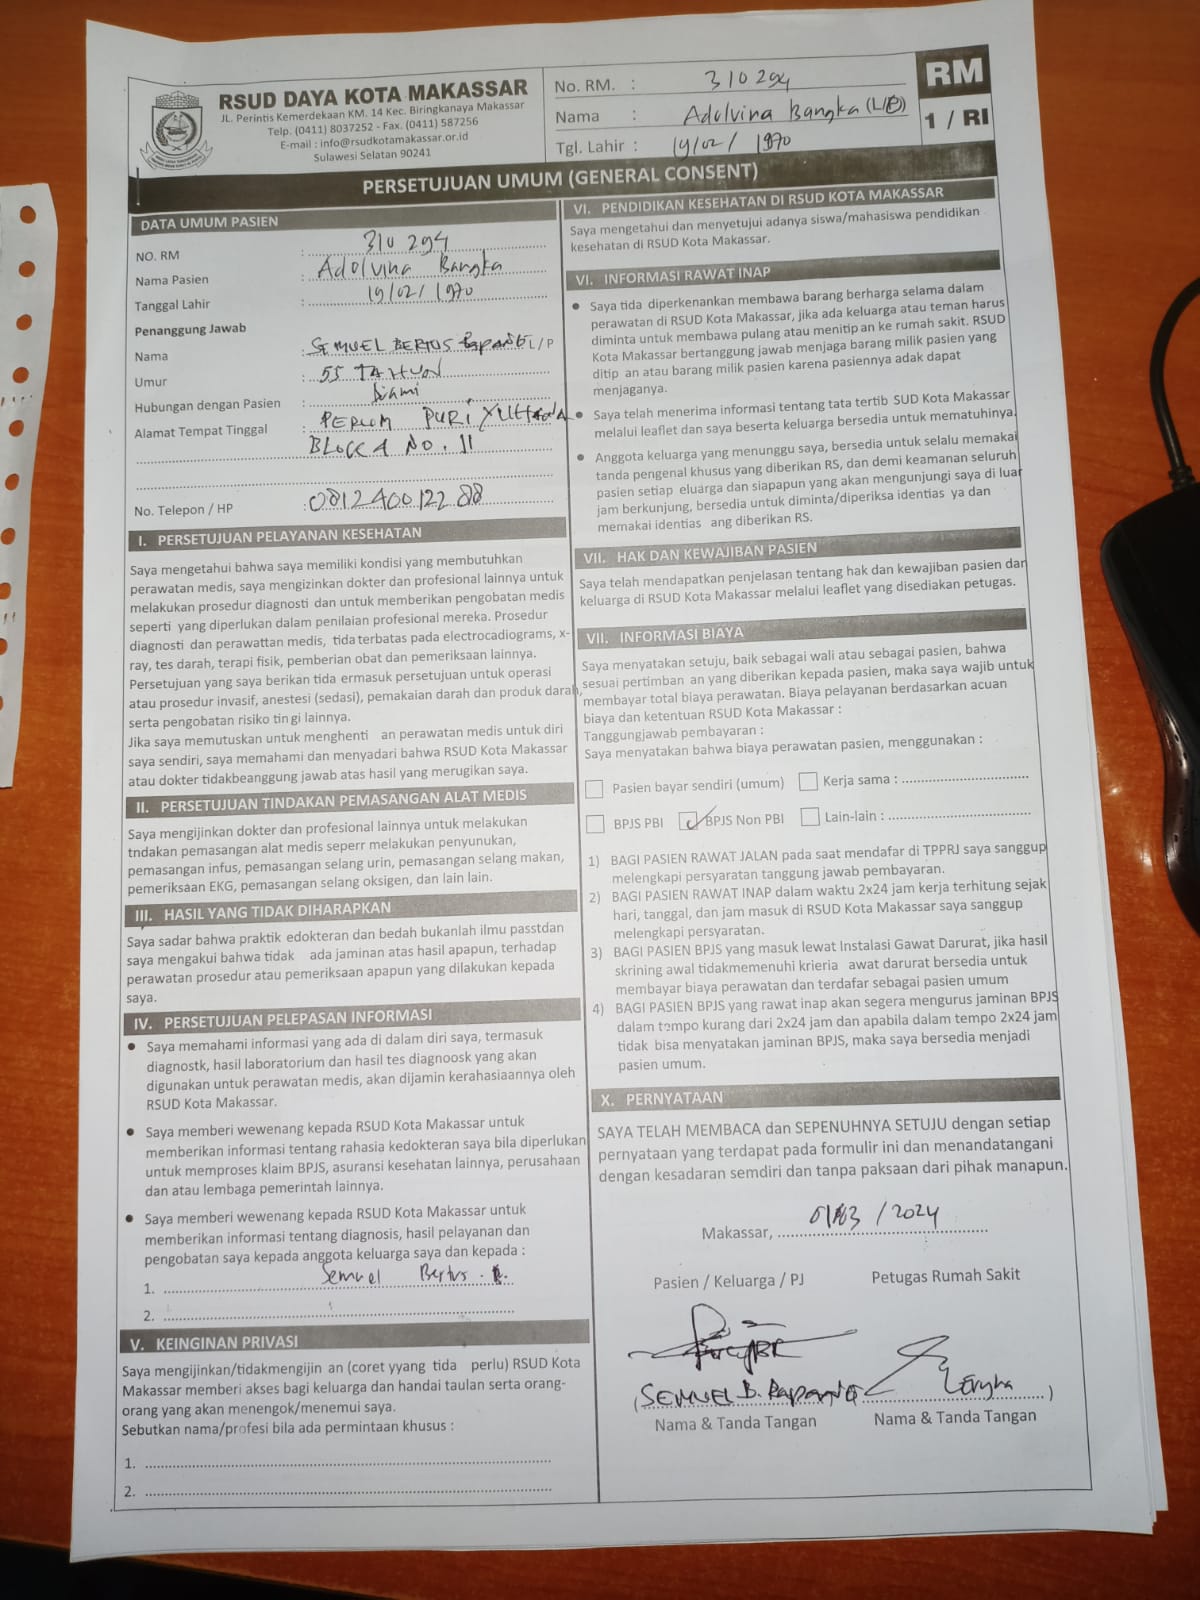 RSUD DAYA KOTA MAKASSAR
JL. Perintis Kemerdekaan KM. 14 Kec. Biringkanaya Makassar
Telp. (0411) 8037252 - Fax. (0411) 587256
E-mail : info@rsudkotamakassar.or.id
Sulawesi Selatan 90241
No. RM. : 310 294
Nama : Adolvina Bangka (L/P)
Tgl. Lahir : 19/02/ 1970
RM
1 / RI
PERSETUJUAN UMUM (GENERAL CONSENT)
DATA UMUM PASIEN
NO. RM : 310 294
Nama Pasien : Adolvina Bangka
Tanggal Lahir : 19/02/ 1970
Penanggung Jawab
Nama : SEMUEL BERTUS L / P
Umur : 55 TAHUN
Hubungan dengan Pasien : Suami
Alamat Tempat Tinggal : PERUM PURI
BLOCK A NO. 11
No. Telepon / HP : 081240012288
I. PERSETUJUAN PELAYANAN KESEHATAN
Saya mengetahui bahwa saya memiliki kondisi yang membutuhkan
perawatan medis, saya mengizinkan dokter dan profesional lainnya untuk
melakukan prosedur diagnosti dan untuk memberikan pengobatan medis
seperti yang diperlukan dalam penilaian profesional mereka. Prosedur
diagnosti dan perawattan medis, tida terbatas pada electrocadiograms, x-
ray, tes darah, terapi fisik, pemberian obat dan pemeriksaan lainnya.
Persetujuan yang saya berikan tida ermasuk persetujuan untuk operasi
atau prosedur invasif, anestesi (sedasi), pemakaian darah dan produk darah,
serta pengobatan risiko tin gi lainnya.
Jika saya memutuskan untuk menghenti an perawatan medis untuk diri
saya sendiri, saya memahami dan menyadari bahwa RSUD Kota Makassar
atau dokter tidakbeanggung jawab atas hasil yang merugikan saya.
II. PERSETUJUAN TINDAKAN PEMASANGAN ALAT MEDIS
Saya mengijinkan dokter dan profesional lainnya untuk melakukan
tndakan pemasangan alat medis seperr melakukan penyunukan,
pemasangan infus, pemasangan selang urin, pemasangan selang makan,
pemeriksaan EKG, pemasangan selang oksigen, dan lain lain.
III. HASIL YANG TIDAK DIHARAPKAN
Saya sadar bahwa praktik edokteran dan bedah bukanlah ilmu passtdan
saya mengakui bahwa tidak ada jaminan atas hasil apapun, terhadap
perawatan prosedur atau pemeriksaan apapun yang dilakukan kepada
saya.
IV. PERSETUJUAN PELEPASAN INFORMASI
● Saya memahami informasi yang ada di dalam diri saya, termasuk
diagnostk, hasil laboratorium dan hasil tes diagnoosk yang akan
digunakan untuk perawatan medis, akan dijamin kerahasiaannya oleh
RSUD Kota Makassar.
● Saya memberi wewenang kepada RSUD Kota Makassar untuk
memberikan informasi tentang rahasia kedokteran saya bila diperlukan
untuk memproses klaim BPJS, asuransi kesehatan lainnya, perusahaan
dan atau lembaga pemerintah lainnya.
● Saya memberi wewenang kepada RSUD Kota Makassar untuk
memberikan informasi tentang diagnosis, hasil pelayanan dan
pengobatan saya kepada anggota keluarga saya dan kepada :
1. Semuel Bertus . R.
2.
V. KEINGINAN PRIVASI
Saya mengijinkan/tidakmengijin an (coret yyang tida perlu) RSUD Kota
Makassar memberi akses bagi keluarga dan handai taulan serta orang-
orang yang akan menengok/menemui saya.
Sebutkan nama/profesi bila ada permintaan khusus :
1.
2.
VI. PENDIDIKAN KESEHATAN DI RSUD KOTA MAKASSAR
Saya mengetahui dan menyetujui adanya siswa/mahasiswa pendidikan
kesehatan di RSUD Kota Makassar.
VI. INFORMASI RAWAT INAP
● Saya tida diperkenankan membawa barang berharga selama dalam
perawatan di RSUD Kota Makassar, jika ada keluarga atau teman harus
diminta untuk membawa pulang atau menitip an ke rumah sakit. RSUD
Kota Makassar bertanggung jawab menjaga barang milik pasien yang
ditip an atau barang milik pasien karena pasiennya adak dapat
menjaganya.
● Saya telah menerima informasi tentang tata tertib SUD Kota Makassar
melalui leaflet dan saya beserta keluarga bersedia untuk mematuhinya.
● Anggota keluarga yang menunggu saya, bersedia untuk selalu memakai
tanda pengenal khusus yang diberikan RS, dan demi keamanan seluruh
pasien setiap eluarga dan siapapun yang akan mengunjungi saya di luar
jam berkunjung, bersedia untuk diminta/diperiksa identias ya dan
memakai identias ang diberikan RS.
VII. HAK DAN KEWAJIBAN PASIEN
Saya telah mendapatkan penjelasan tentang hak dan kewajiban pasien dan
keluarga di RSUD Kota Makassar melalui leaflet yang disediakan petugas.
VII. INFORMASI BIAYA
Saya menyatakan setuju, baik sebagai wali atau sebagai pasien, bahwa
sesuai pertimban an yang diberikan kepada pasien, maka saya wajib untuk
membayar total biaya perawatan. Biaya pelayanan berdasarkan acuan
biaya dan ketentuan RSUD Kota Makassar :
Tanggungjawab pembayaran :
Saya menyatakan bahwa biaya perawatan pasien, menggunakan :
Pasien bayar sendiri (umum) Kerja sama :
BPJS PBI BPJS Non PBI Lain-lain :
1) BAGI PASIEN RAWAT JALAN pada saat mendafar di TPPRJ saya sanggup
melengkapi persyaratan tanggung jawab pembayaran.
2) BAGI PASIEN RAWAT INAP dalam waktu 2x24 jam kerja terhitung sejak
hari, tanggal, dan jam masuk di RSUD Kota Makassar saya sanggup
melengkapi persyaratan.
3) BAGI PASIEN BPJS yang masuk lewat Instalasi Gawat Darurat, jika hasil
skrining awal tidakmemenuhi krieria awat darurat bersedia untuk
membayar biaya perawatan dan terdafar sebagai pasien umum
4) BAGI PASIEN BPJS yang rawat inap akan segera mengurus jaminan BPJS
dalam tempo kurang dari 2x24 jam dan apabila dalam tempo 2x24 jam
tidak bisa menyatakan jaminan BPJS, maka saya bersedia menjadi
pasien umum.
X. PERNYATAAN
SAYA TELAH MEMBACA dan SEPENUHNYA SETUJU dengan setiap
pernyataan yang terdapat pada formulir ini dan menandatangani
dengan kesadaran semdiri dan tanpa paksaan dari pihak manapun.
Makassar, 01/03 / 2024
Pasien / Keluarga / PJ Petugas Rumah Sakit
(SEMUEL B. Rapang )
Nama & Tanda Tangan Nama & Tanda Tangan